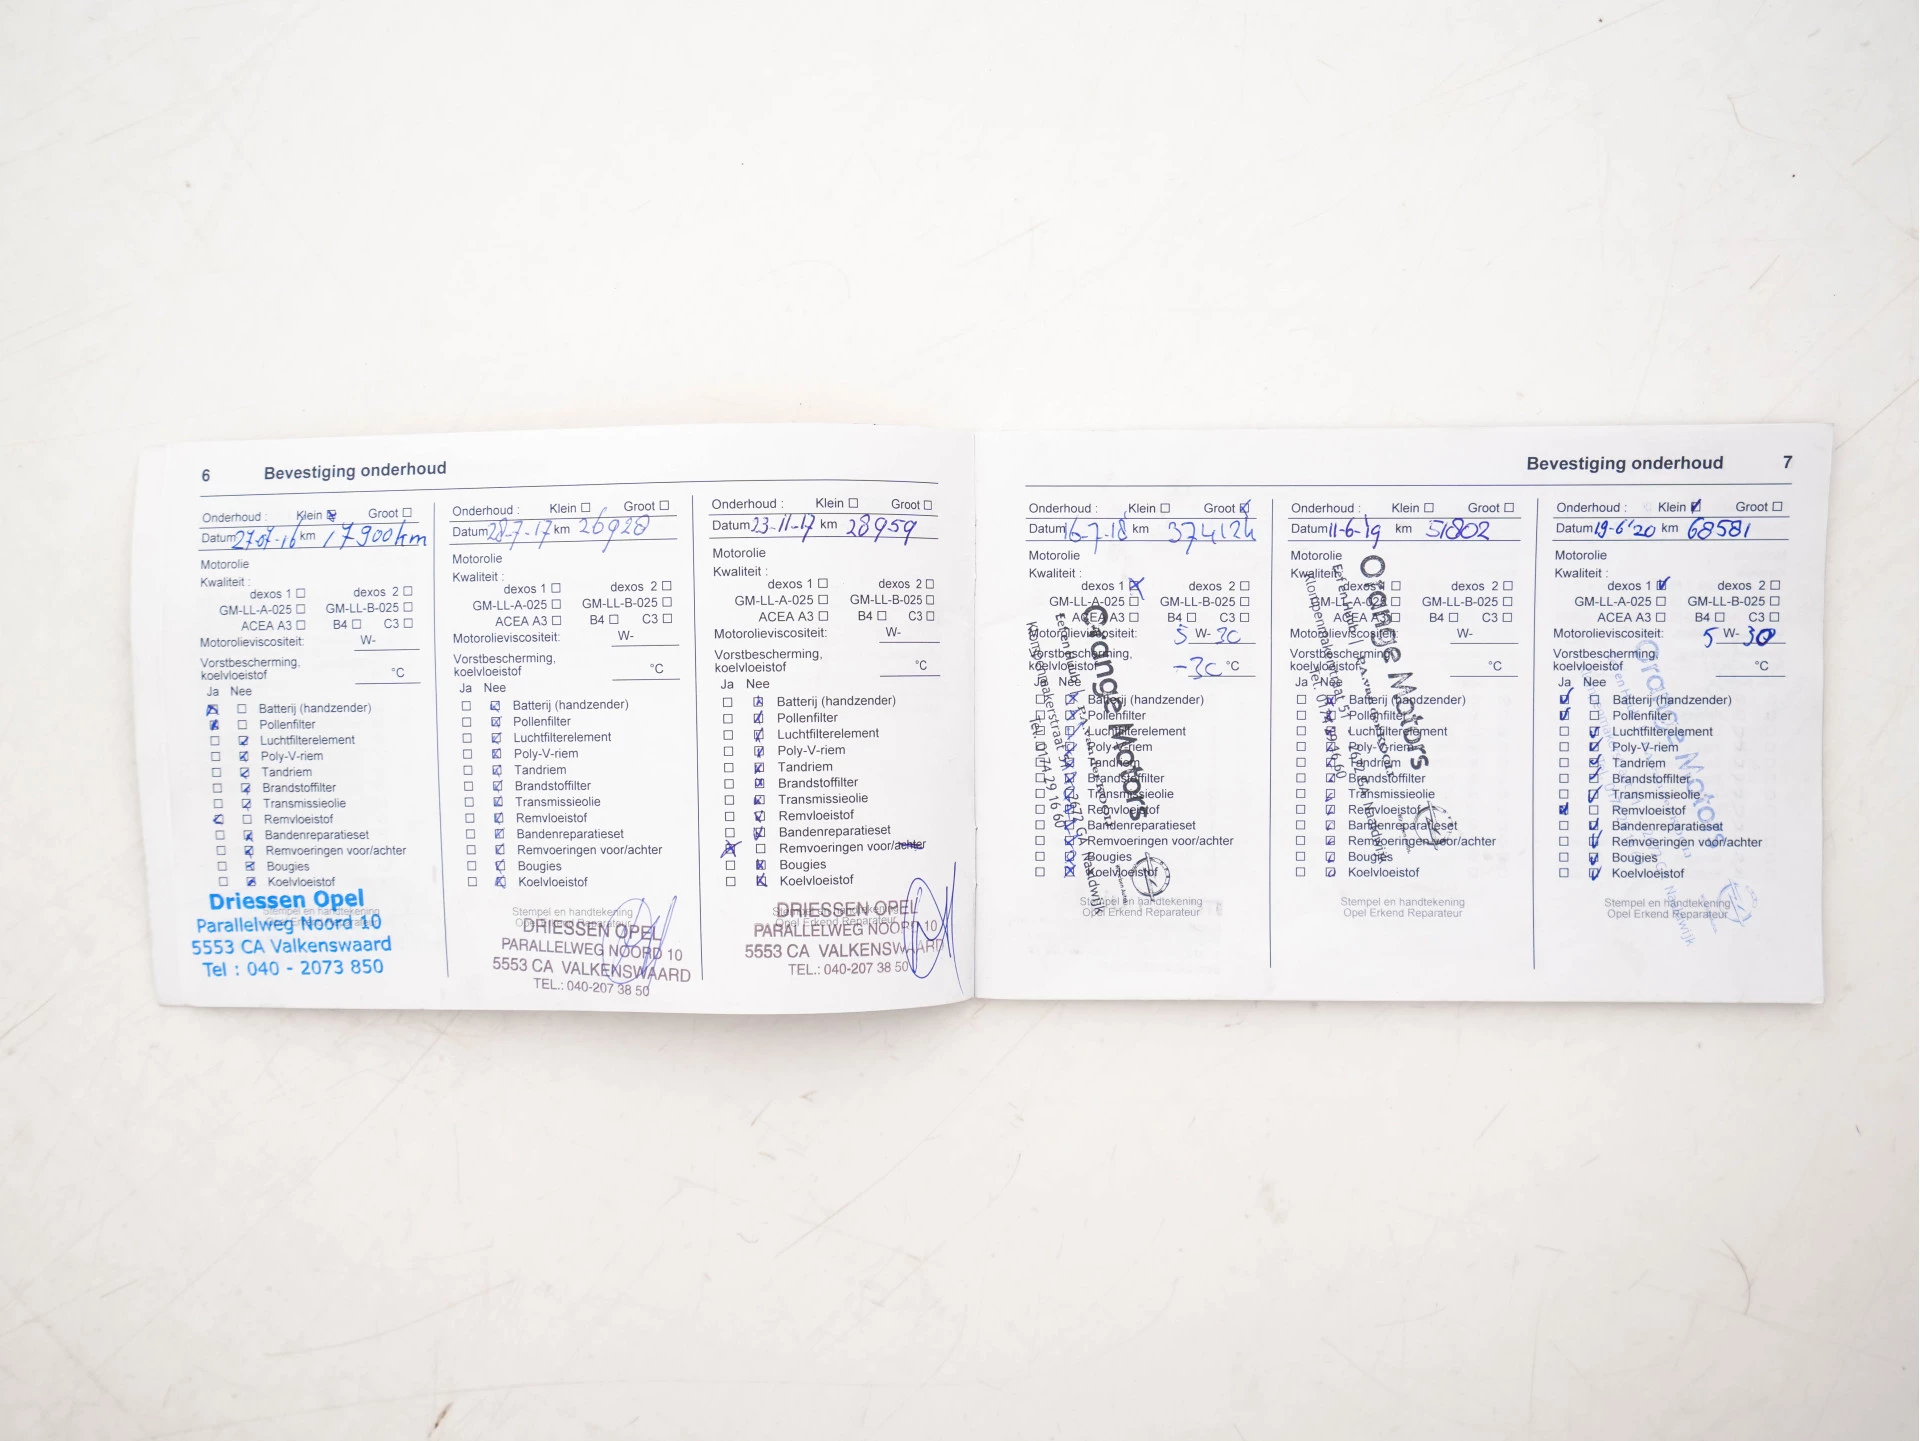 6 Bevestiging onderhoud
Onderhoud : Klein Groot
Datum 27-07-16 km 17900km
Motorolie
Kwaliteit :
dexos 1 dexos 2
GM-LL-A-025 GM-LL-B-025
ACEA A3 B4 C3
Motorolieviscositeit: W-
Vorstbescherming,
koelvloeistof °C
Ja Nee
Batterij (handzender)
Pollenfilter
Luchtfilterelement
Poly-V-riem
Tandriem
Brandstoffilter
Transmissieolie
Remvloeistof
Bandenreparatieset
Remvoeringen voor/achter
Bougies
Koelvloeistof
Stempel en handtekening
Opel Erkend Reparateur
Driessen Opel
Parallelweg Noord 10
5553 CA Valkenswaard
Tel : 040 - 2073 850
Onderhoud : Klein Groot
Datum 28-7-17 km 26928
Motorolie
Kwaliteit :
dexos 1 dexos 2
GM-LL-A-025 GM-LL-B-025
ACEA A3 B4 C3
Motorolieviscositeit: W-
Vorstbescherming,
koelvloeistof °C
Ja Nee
Batterij (handzender)
Pollenfilter
Luchtfilterelement
Poly-V-riem
Tandriem
Brandstoffilter
Transmissieolie
Remvloeistof
Bandenreparatieset
Remvoeringen voor/achter
Bougies
Koelvloeistof
Stempel en handtekening
Opel Erkend Reparateur
DRIESSEN OPEL
PARALLELWEG NOORD 10
5553 CA VALKENSWAARD
TEL.: 040-207 38 50
Onderhoud : Klein Groot
Datum 23-11-17 km 28959
Motorolie
Kwaliteit :
dexos 1 dexos 2
GM-LL-A-025 GM-LL-B-025
ACEA A3 B4 C3
Motorolieviscositeit: W-
Vorstbescherming,
koelvloeistof °C
Ja Nee
Batterij (handzender)
Pollenfilter
Luchtfilterelement
Poly-V-riem
Tandriem
Brandstoffilter
Transmissieolie
Remvloeistof
Bandenreparatieset
Remvoeringen voor/achter
Bougies
Koelvloeistof
Stempel en handtekening
Opel Erkend Reparateur
DRIESSEN OPEL
PARALLELWEG NOORD 10
5553 CA VALKENSWAARD
TEL.: 040-207 38 50
Bevestiging onderhoud 7
Onderhoud : Klein Groot
Datum 16-7-18 km
Motorolie
Kwaliteit :
dexos 1 dexos 2
GM-LL-A-025 GM-LL-B-025
ACEA A3 B4 C3
Motorolieviscositeit: 5 W- 30
Vorstbescherming,
koelvloeistof -30 °C
Ja Nee
Batterij (handzender)
Pollenfilter
Luchtfilterelement
Poly-V-riem
Tandriem
Brandstoffilter
Transmissieolie
Remvloeistof
Bandenreparatieset
Remvoeringen voor/achter
Bougies
Koelvloeistof
Stempel en handtekening
Opel Erkend Reparateur
Orange Motors
2672 GA Naaldwijk
Tel. 0174 29 16 60
Onderhoud : Klein Groot
Datum 11-6-19 km 51802
Motorolie
Kwaliteit :
dexos 1 dexos 2
GM-LL-A-025 GM-LL-B-025
ACEA A3 B4 C3
Motorolieviscositeit: W-
Vorstbescherming,
koelvloeistof °C
Ja Nee
Batterij (handzender)
Pollenfilter
Luchtfilterelement
Poly-V-riem
Tandriem
Brandstoffilter
Transmissieolie
Remvloeistof
Bandenreparatieset
Remvoeringen voor/achter
Bougies
Koelvloeistof
Stempel en handtekening
Opel Erkend Reparateur
Orange Motors
2672 GA Naaldwijk
Onderhoud : Klein Groot
Datum 19-6-'20 km 68581
Motorolie
Kwaliteit :
dexos 1 dexos 2
GM-LL-A-025 GM-LL-B-025
ACEA A3 B4 C3
Motorolieviscositeit: 5 W- 30
Vorstbescherming,
koelvloeistof °C
Ja Nee
Batterij (handzender)
Pollenfilter
Luchtfilterelement
Poly-V-riem
Tandriem
Brandstoffilter
Transmissieolie
Remvloeistof
Bandenreparatieset
Remvoeringen voor/achter
Bougies
Koelvloeistof
Stempel en handtekening
Opel Erkend Reparateur
Orange Motors
Naaldwijk